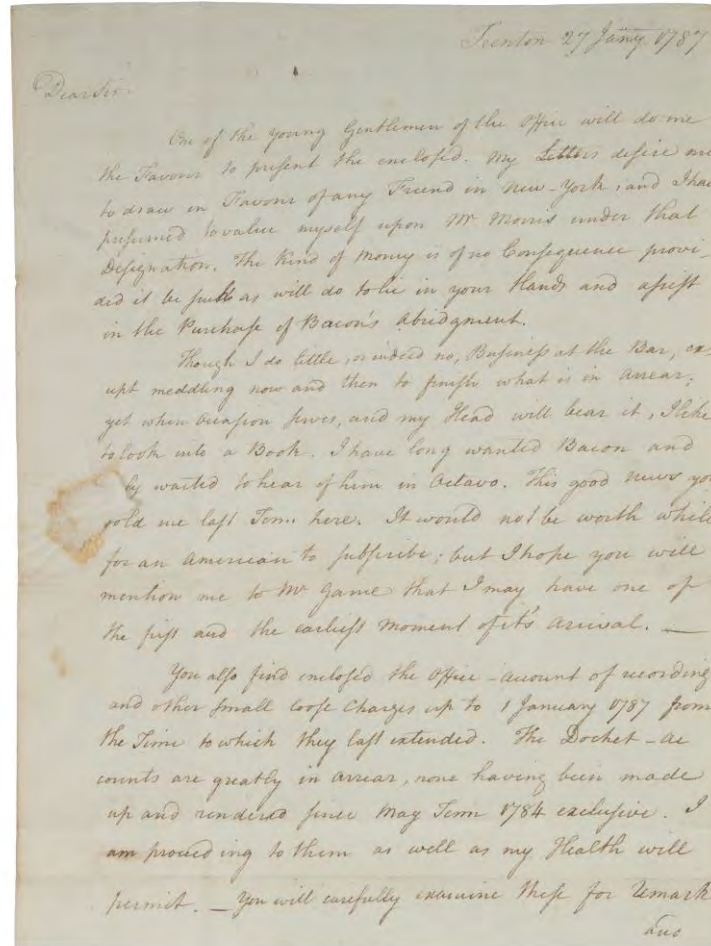 Trenton 27 Jany. 1787
Dear Sir
One of the young Gentlemen of the Office will do me
the Favour to present the enclosed. My Letters desire me
to draw in Favour of any Friend in New-York, and I have
presumed to value myself upon Mr Morris under that
Designation. The Kind of Money is of no Consequence provi-
ded it be such as will do to lie in your Hands and assist
in the Purchase of Bacon's Abridgment.
Though I do little, or indeed no, Business at the Bar, ex-
cept meddling now and then to finish what is in Arrear;
yet when Occasion serves, and my Head will bear it, I like
to look into a Book. I have long wanted Bacon and
waited to hear of him in Octavo. This good news you
told me last Term here. It would not be worth while
for an American to subscribe; but I hope you will
mention me to Mr Gaine that I may have one of
the first and the earliest Moment of it's Arrival. —
You also find enclosed the Office-Account of recording
and other small loose Charges up to 1 January 1787 from
the Time to which they last extended. The Docket-Ac
counts are greatly in Arrear, none having been made
up and rendered since May Term 1784 exclusive. I
am proceeding to them as well as my Health will
permit. — You will carefully examine these for Remark